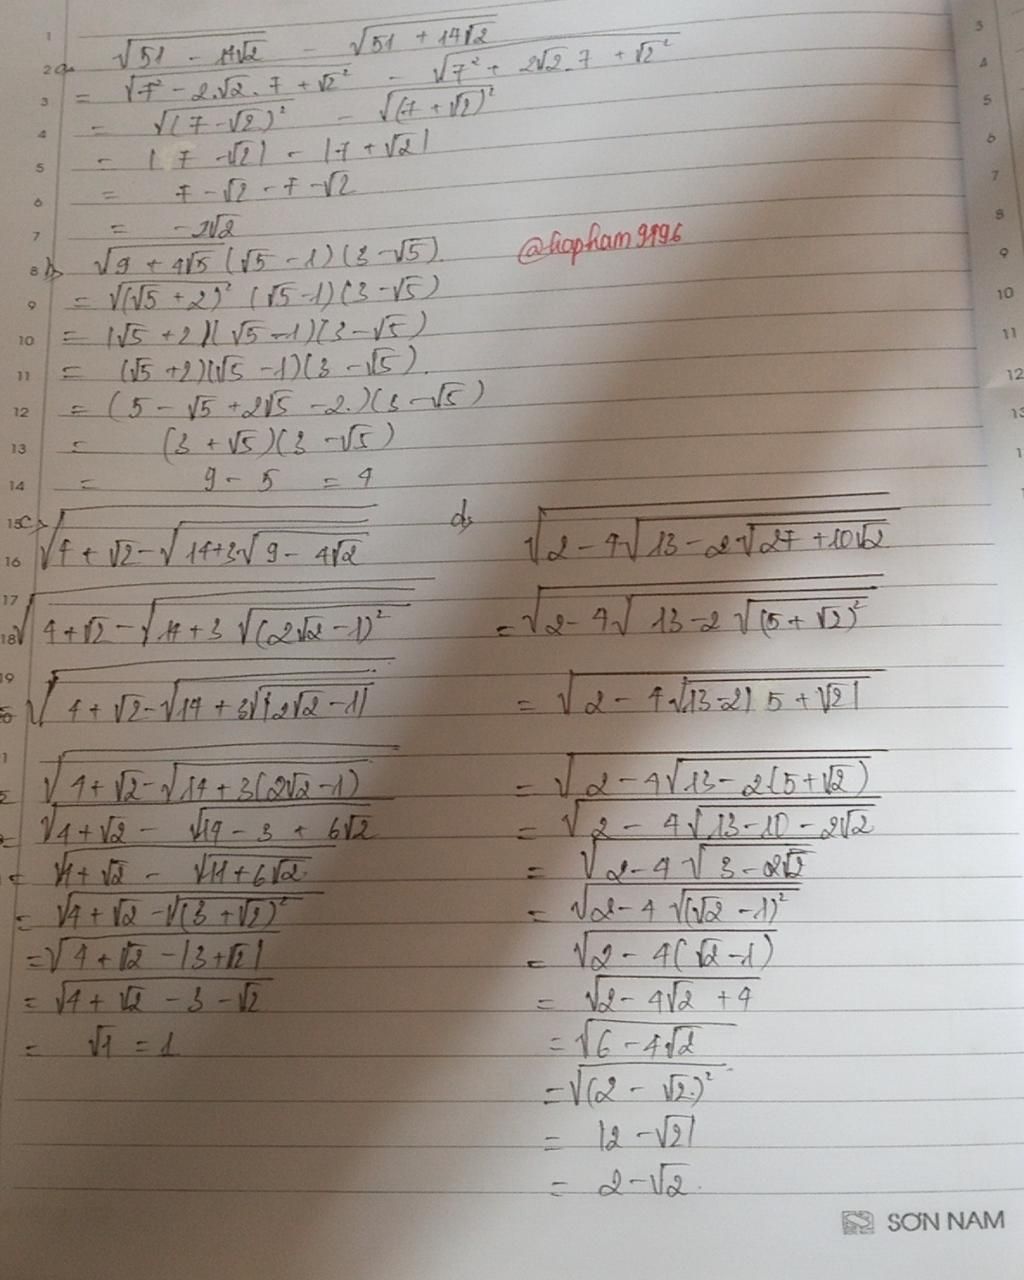 a, √(51 - 14√2) - √(51 + 14√2)
= √(7² - 2.√2.7 + √2²) - √(7² + 2√2.7 + √2²)
= √((7 - √2)²) - √((7 + √2)²)
= |7 - √2| - |7 + √2|
= 7 - √2 - 7 - √2
= -2√2
b, √(9 + 4√5) (√5 - 1)(3 - √5).
@hapham9196
= √((√5 + 2)²) (√5 - 1)(3 - √5)
= |√5 + 2|(√5 - 1)(3 - √5)
= (√5 + 2)(√5 - 1)(3 - √5).
= (5 - √5 + 2√5 - 2.)(3 - √5)
= (3 + √5)(3 - √5)
= 9 - 5 = 4
c, √(4 + √2 - √(14 + 3√(9 - 4√2)))
√(4 + √2 - √(14 + 3√((2√2 - 1)²)))
√(4 + √2 - √(14 + 3√|2√2 - 1|))
√(4 + √2 - √(14 + 3(2√2 - 1)))
= √(4 + √2 - √(14 - 3 + 6√2))
= √(4 + √2 - √(11 + 6√2))
= √(4 + √2 - √((3 + √2)²))
= √(4 + √2 - |3 + √2|)
= √(4 + √2 - 3 - √2)
= √1 = 1
d, √(2 - 4√(13 - 2√(27 + 10√2)))
= √(2 - 4√(13 - 2√((5 + √2)²)))
= √(2 - 4√(13 - 2|5 + √2|))
= √(2 - 4√(13 - 2(5 + √2)))
= √(2 - 4√(13 - 10 - 2√2))
= √(2 - 4√(3 - 2√2))
= √(2 - 4√((√2 - 1)²))
= √(2 - 4(√2 - 1))
= √(2 - 4√2 + 4)
= √(6 - 4√2)
= √((2 - √2.)²)
= |2 - √2|
= 2 - √2.
SƠN NAM